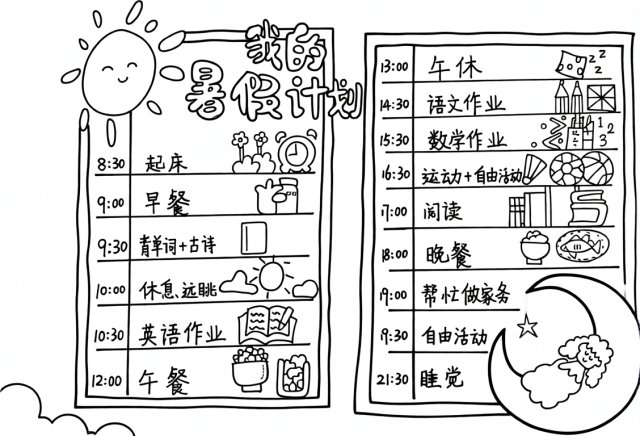 我的
暑假计划
8:30 起床
9:00 早餐
9:30 背单词+古诗
10:00 休息、远眺
10:30 英语作业
12:00 午餐
13:00 午休
zzz
14:30 语文作业
15:30 数学作业
1 2 3
16:30 运动+自由活动
17:00 阅读
18:00 晚餐
19:00 帮忙做家务
9:30 自由活动
21:30 睡觉